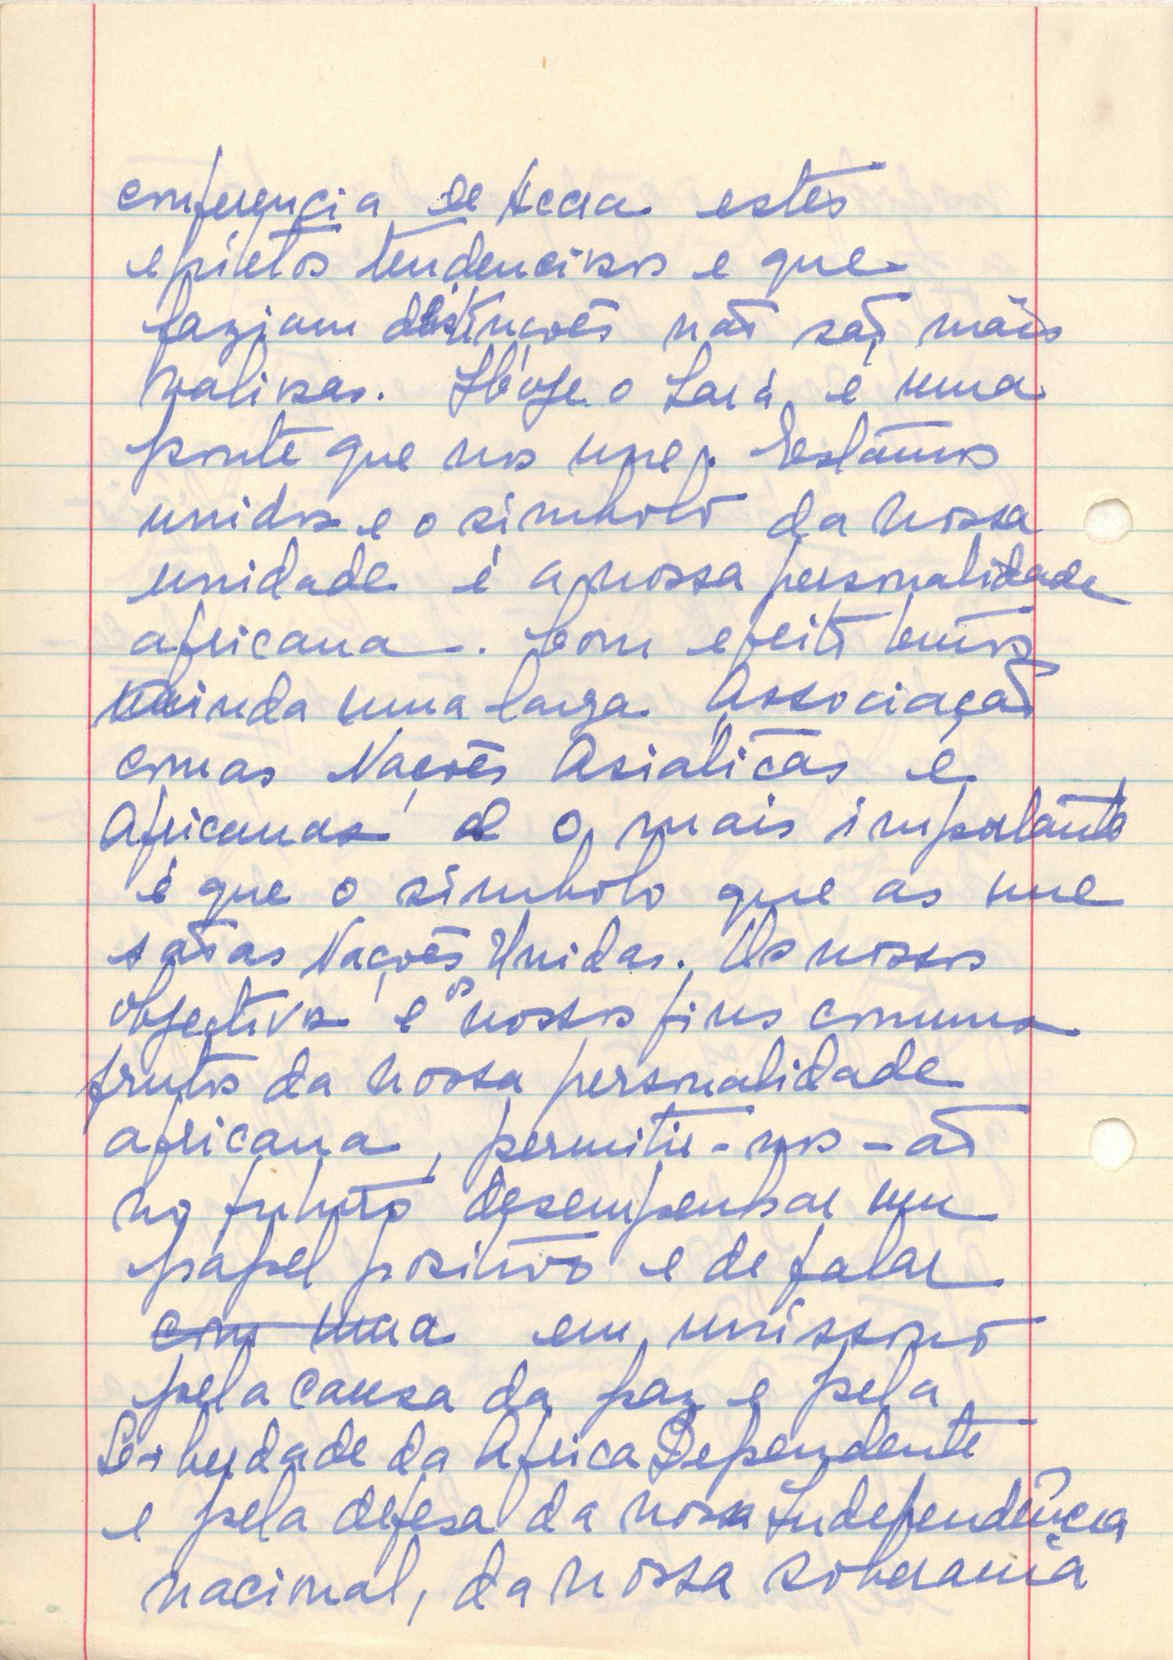 conferencia de Accra estes
epiletos tendenciosos e que
faziam distinções não são mais
valiosas. Hoje o Sará é uma
ponte que nos une. Estamos
unidos e o simbolo da nossa
unidade é a nossa personalidade
africana. Com efeito temos
ainda uma larga Associação
com as Nações Asiaticas e
Africanas e o mais importante
é que o simbolo que as une
são as Nações Unidas. Os nossos
objectivos e os nossos fins comuns
frutos da nossa personalidade
africana, permitir-nos-ão
no futuro desempenhar um
papel positivo e de falar
com uma em unissono
pela causa da paz e pela
Liberdade da Africa Dependente
e pela defesa da nossa Independência
nacional, da nossa soberania